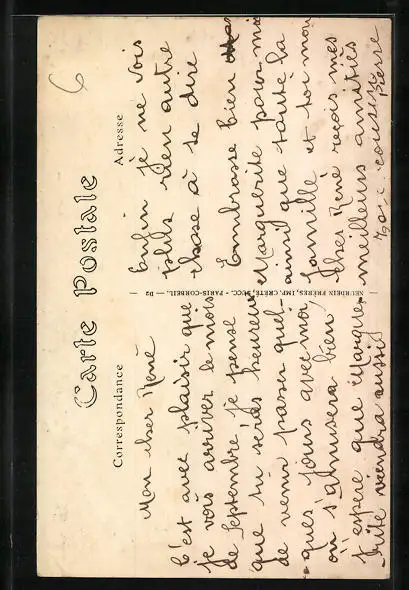 Carte Postale
Correspondance
Adresse
Mon cher René
C'est avec plaisir que
je vois arriver le mois
de Septembre je pense
que tu seras heureux
de venir passer quel-
ques jours avec moi,
on s'amusera bien
J'espère que Margue-
rite viendra aussi
Enfin je ne vois
plus rien autre
chose à te dire
Embrasse bien
Marguerite pour moi
ainsi que toute la
famille et toi mon
cher René reçois mes
meilleurs amitiés
Ton cousin
Pierre
NEURDEIN FRÈRES, IMP. CRÉTÉ, SUCC. - PARIS-CORBEIL. - D2
6